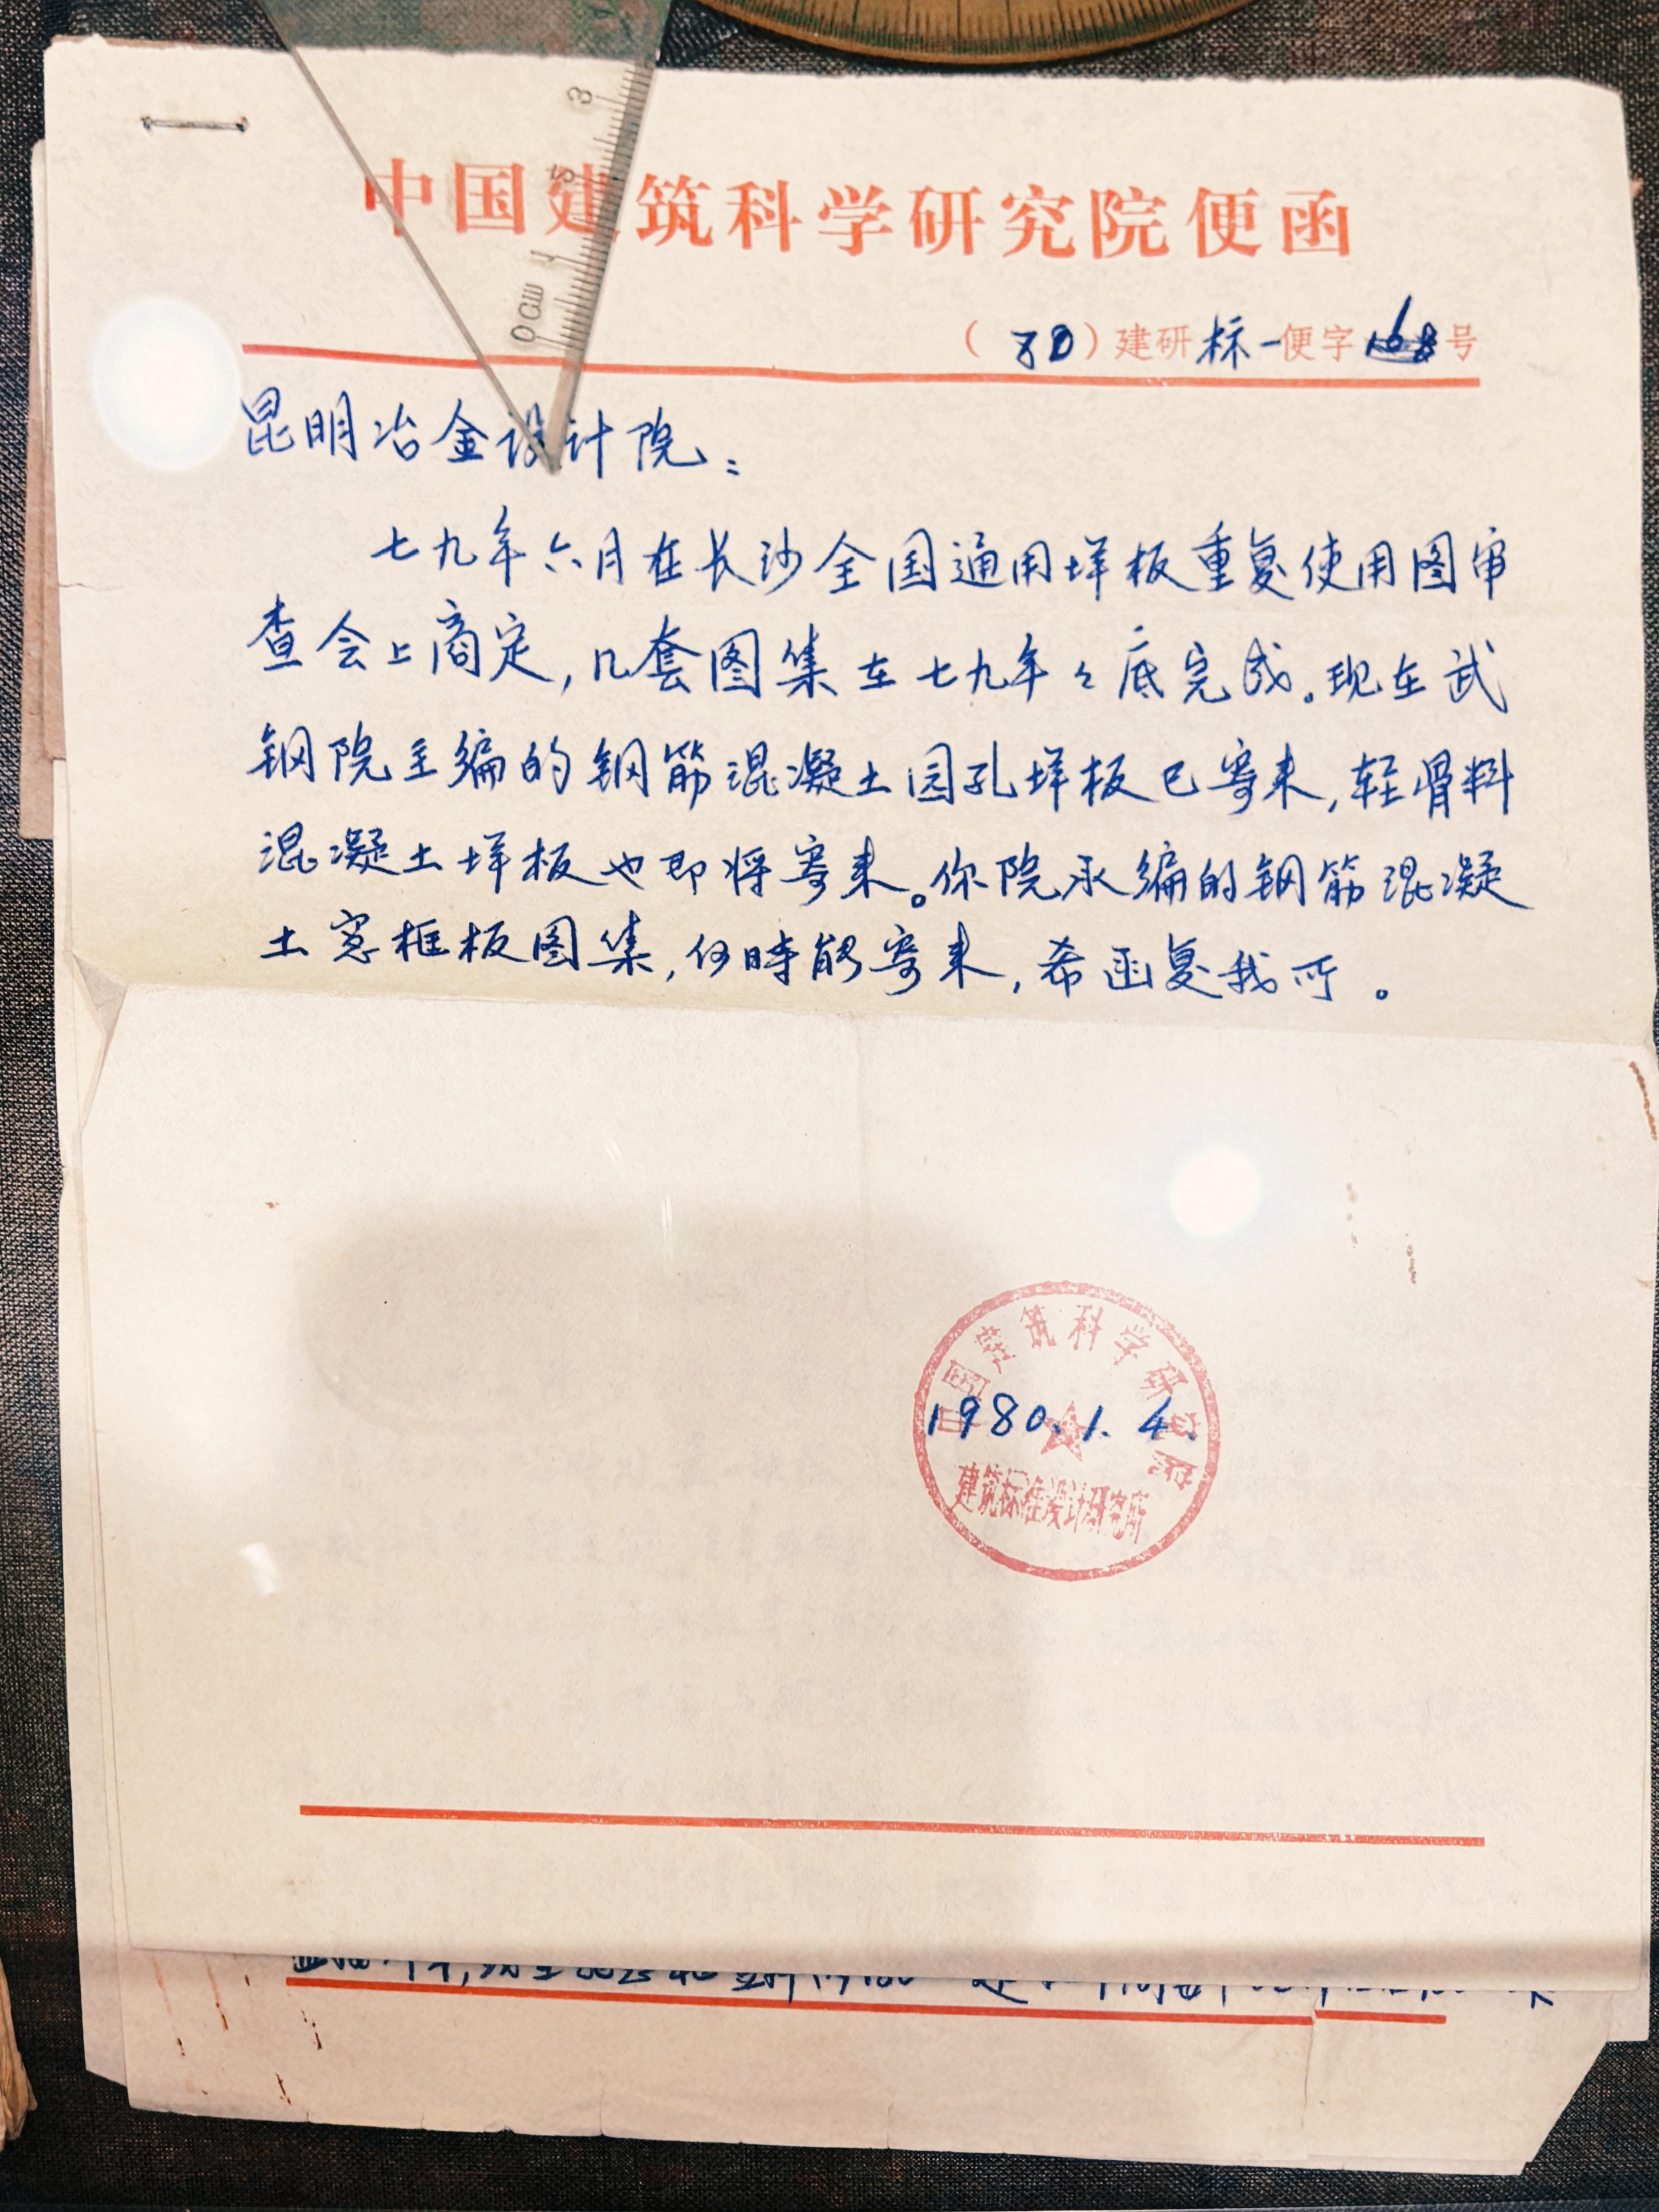 中国建筑科学研究院便函
（80）建研标一便字168号
昆明冶金设计院：
七九年六月在长沙全国通用垟板重复使用图审
查会上商定，几套图集在七九年々底完成。现在武
钢院主编的钢筋混凝土园孔垟板已寄来，轻骨料
混凝土垟板也即将寄来。你院承编的钢筋混凝
土窓框板图集，何時能寄来，希函复我所。
中国建筑科学研究院
1980.1.4.
建筑标准设计研究所
0cm 1 2 3